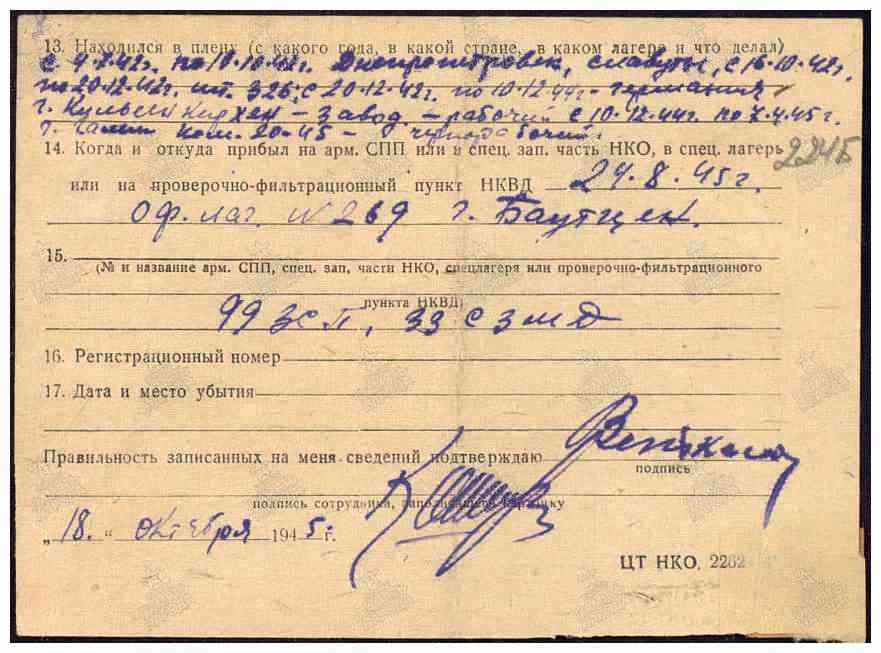 13. Находился в плену (с какого года, в какой стране, в каком лагере и что делал)
с 9.7.42г. по 10.10.42г. Днепропетровск, славуты, с 16.10.42г.
по 20.12.42г. шт. 326; с 20.12.42г. по 10.12.44г. - германия
г. - завод. - рабочий с 10.12.44г. по 7.4.45г.
г. ком. 20-45 - чернорабочий.
14. Когда и откуда прибыл на арм. СПП или в спец. зап. часть НКО, в спец. лагерь
224Б
или на проверочно-фильтрационный пункт НКВД 24.8.45г.
Оф. лаг. №269 г. Баутцен.
15.
(№ и название арм. СПП, спец. зап. части НКО, спецлагеря или проверочно-фильтрационного
пункта НКВД)
99 зсп, 33 сзмд
16. Регистрационный номер
17. Дата и место убытия
Правильность записанных на меня сведений подтверждаю
подпись
подпись сотрудника, заполнявшего карточку
„18.“ октября 1945г.
ЦТ НКО. 2262